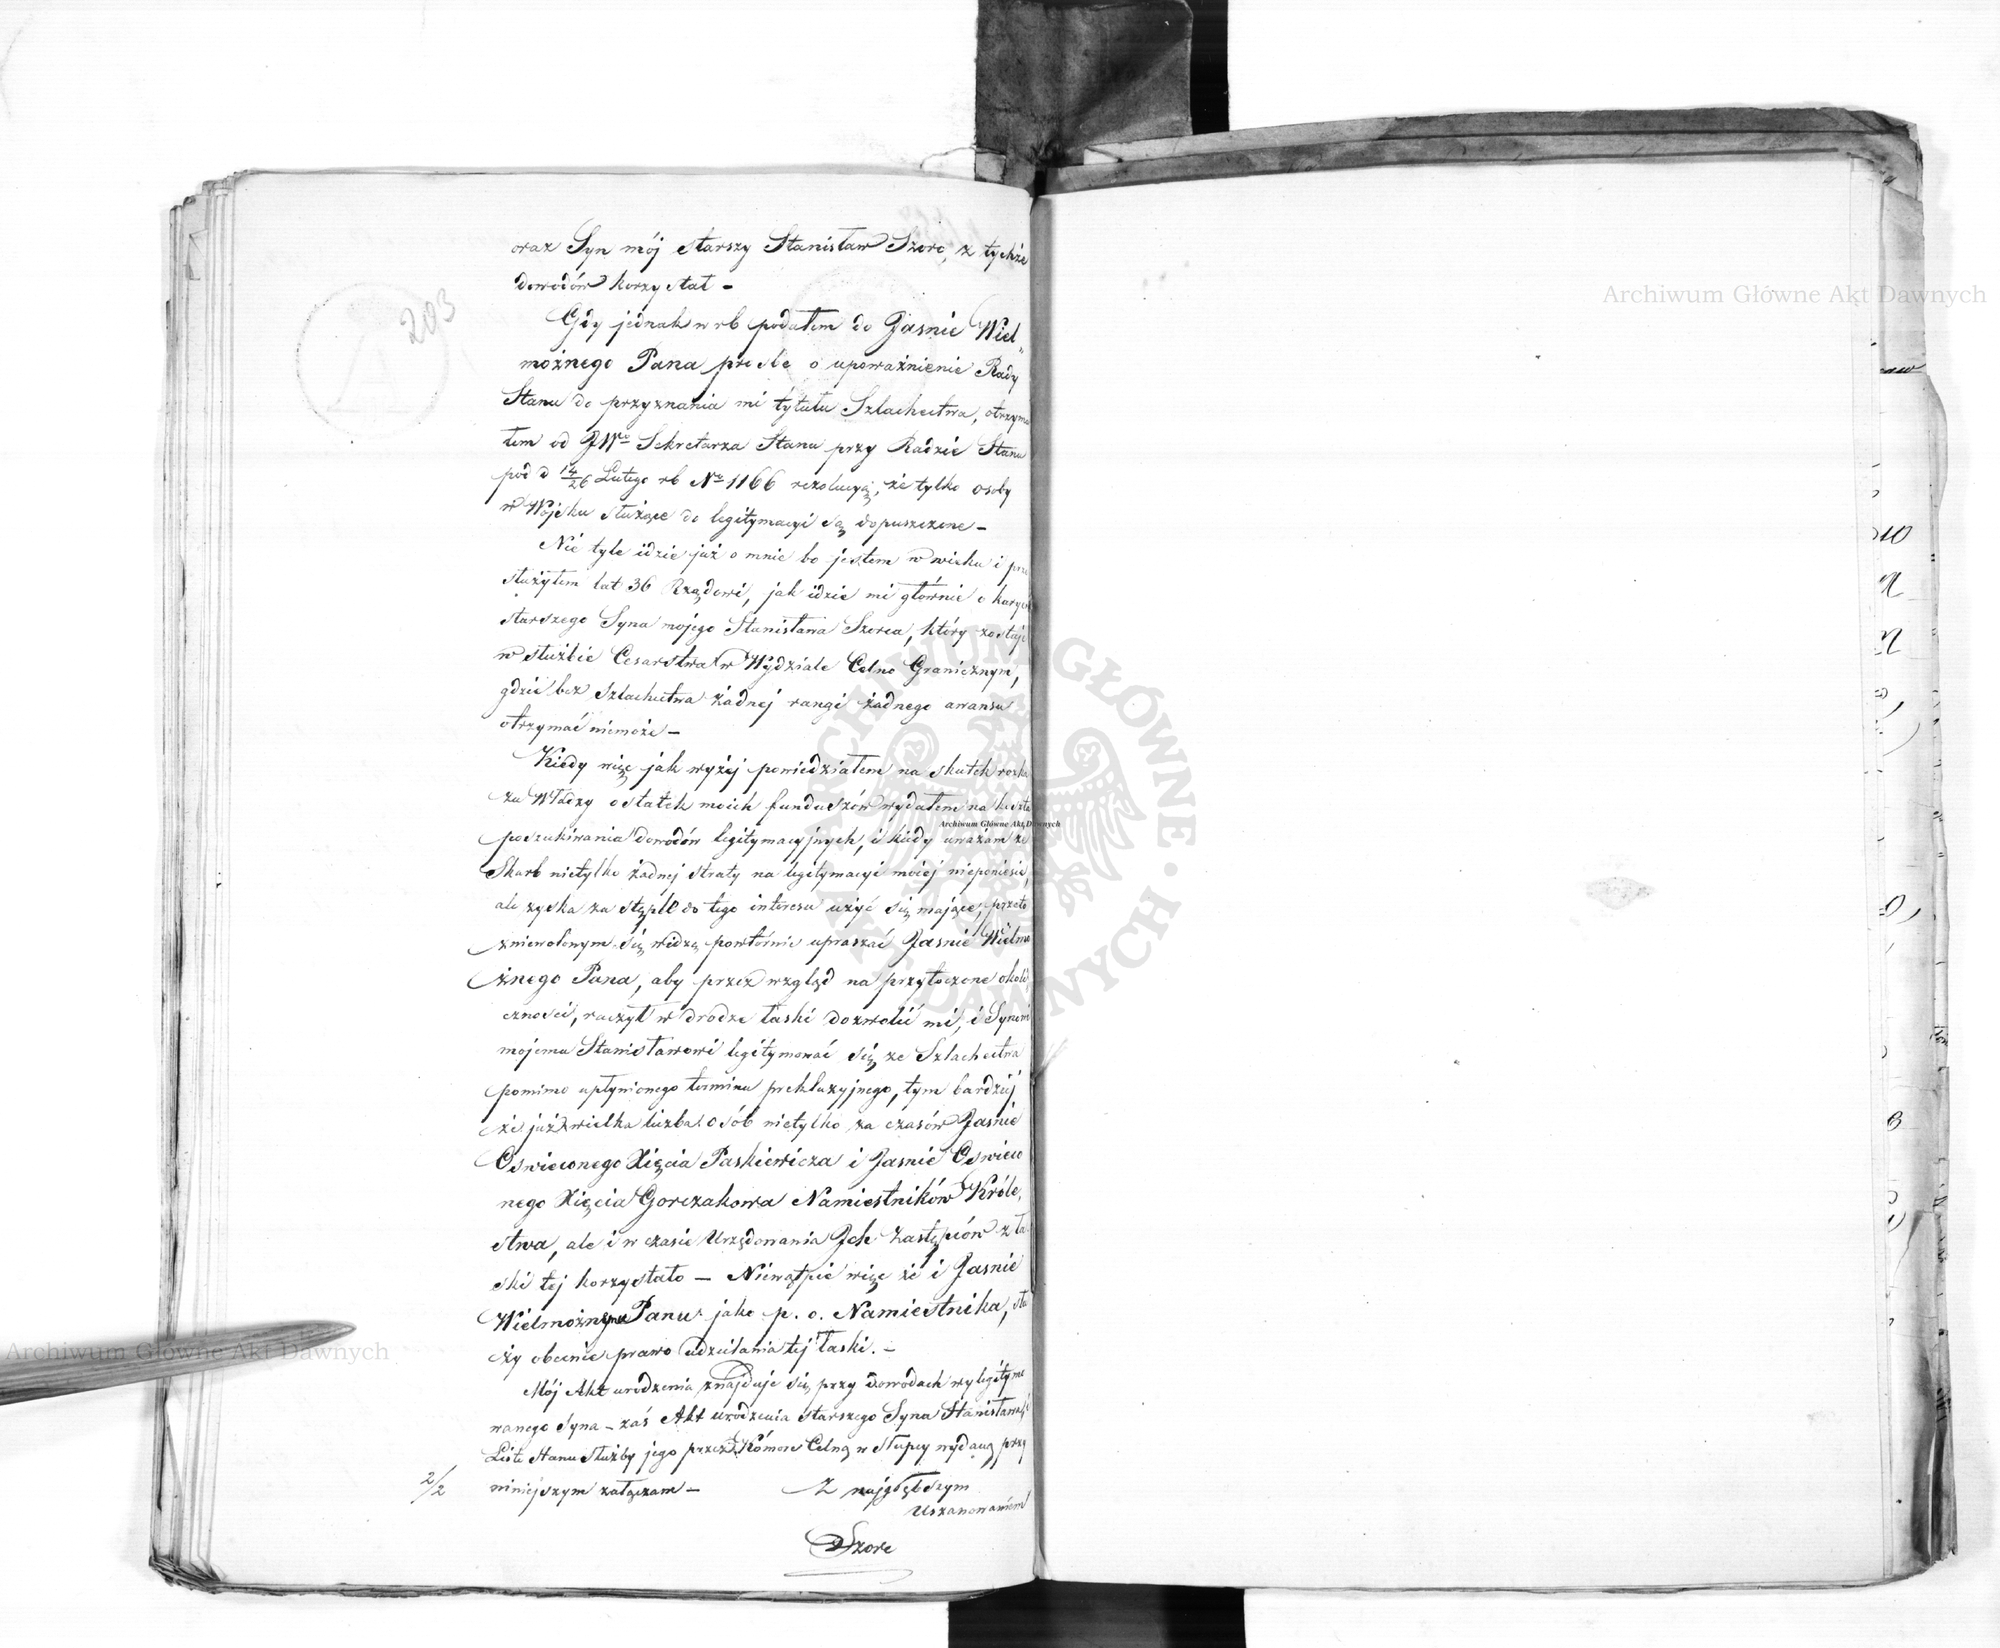 203
oraz Syn mój starszy Stanisław Szorc, z tychże
dowodów korzystał –
Gdy jednak w rb podałem do Jaśnie Wiel„
możnego Pana prośbę o upoważnienie Rady
Stanu do przyznania mi tytułu Szlachectwa, otrzyma
łem od JWo Sekretarza Stanu przy Radzie Stanu
pod d 14/26 Lutego rb No 1166 rezolucyą, że tylko osoby
w Wojsku służące do legitymacyi są dopuszczone –
Nie tyle idzie już o mnie bo jestem w wieku i prze
służyłem lat 36 Rządowi, jak idzie mi głównie o
starszego Syna mojego Stanisława Szorca, który zostaje
w służbie Cesarstwa w Wydziale Celno Granicznym,
gdzie bez Szlachectwa żadnej rangi żadnego awansu
otrzymać niemoże –
Kiedy więc jak wyżej powiedziałem na skutek rozka
zu Władzy ostatek moich funduszów wydałem na koszta
poszukiwania dowodów legitymacyjnych, i kiedy uważam że
Skarb nietylko żadnej straty na legitymacyi mojej nieponiesie,
ale zyska za stępel do tego interesu użyć się mające, przeto
zniewolonym się widzę powtórnie upraszać Jaśnie Wielmo
żnego Pana, aby przez wzgląd na przytoczone okoli
czności, raczył w drodze łaski dozwolić mi, i Synowi
mojemu Stanisławowi legitymować się ze Szlachectwa
pomimo upłynionego terminu prekluzyjnego, tym bardziej
że już wielka liczba osób nietylko za czasów Jaśnie
Oświeconego Xięcia Paskiewicza i Jaśnie Oświeco
nego Xięcia Gorczakowa Namiestników Króle„
stwa, ale i w czasie Urzędowania Ich Zastępców z ła
ski tej korzystało – Niewątpię więc że i Jaśnie
Wielmożnemu Panu jako p. o. Namiestnika, słu
ży obecnie prawo udzielania tej łaski. –
Mój Akt urodzenia znajduje się przy dowodach wylegitymo
wanego Syna – zaś Akt urodzenia starszego Syna Stanisława i
Listę Stanu Służby jego przez Komorę Celną w Słupcy wydaną przy
2/2 niniejszym załączam –
Z najgłębszym
Uszanowaniem
Szorc
Archiwum Główne Akt Dawnych
Archiwum Główne Akt Dawnych
Archiwum Główne Akt Dawnych
ARCHIWUM GŁÓWNE AKT DAWNYCH